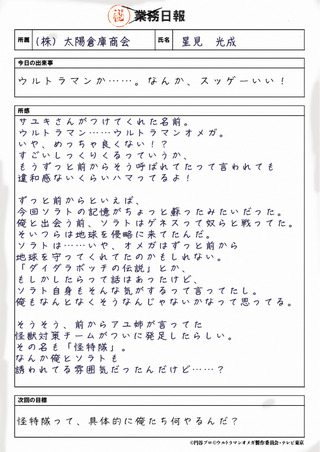 認 業務日報
所属 (株) 太陽倉庫商会 氏名 星見 光成
今日の出来事
ウルトラマンか……。なんか、スッゲーいい！
所感
サユキさんがつけてくれた名前。
ウルトラマン……ウルトラマンオメガ。
いや、めっちゃ良くない！？
すごいしっくりくるっていうか、
もうずっと前からそう呼ばれてたって言われても
違和感ないくらいハマってるよ！
ずっと前からといえば、
今回ソラトの記憶がちょっと蘇ったみたいだった。
俺と出会う前、ソラトはゲネスって奴らと戦ってた。
そいつらは地球を侵略に来てたんだ。
ソラトは……いや、オメガはずっと前から
地球を守ってくれてたのかもしれない。
「ダイダラボッチの伝説」とか、
もしかしたらって話はあったけど、
ソラト自身もそんな気がするって言ってたし。
俺もなんとなくそうなんじゃないかなって思ってる。
そうそう、前からアユ姉が言ってた
怪獣対策チームがついに発足したらしい。
その名も「怪特隊」。
なんか俺とソラトも
誘われてる雰囲気だったんだけど……？
次回の目標
怪特隊って、具体的に俺たち何やるんだ？
©円谷プロ©ウルトラマンオメガ製作委員会・テレビ東京